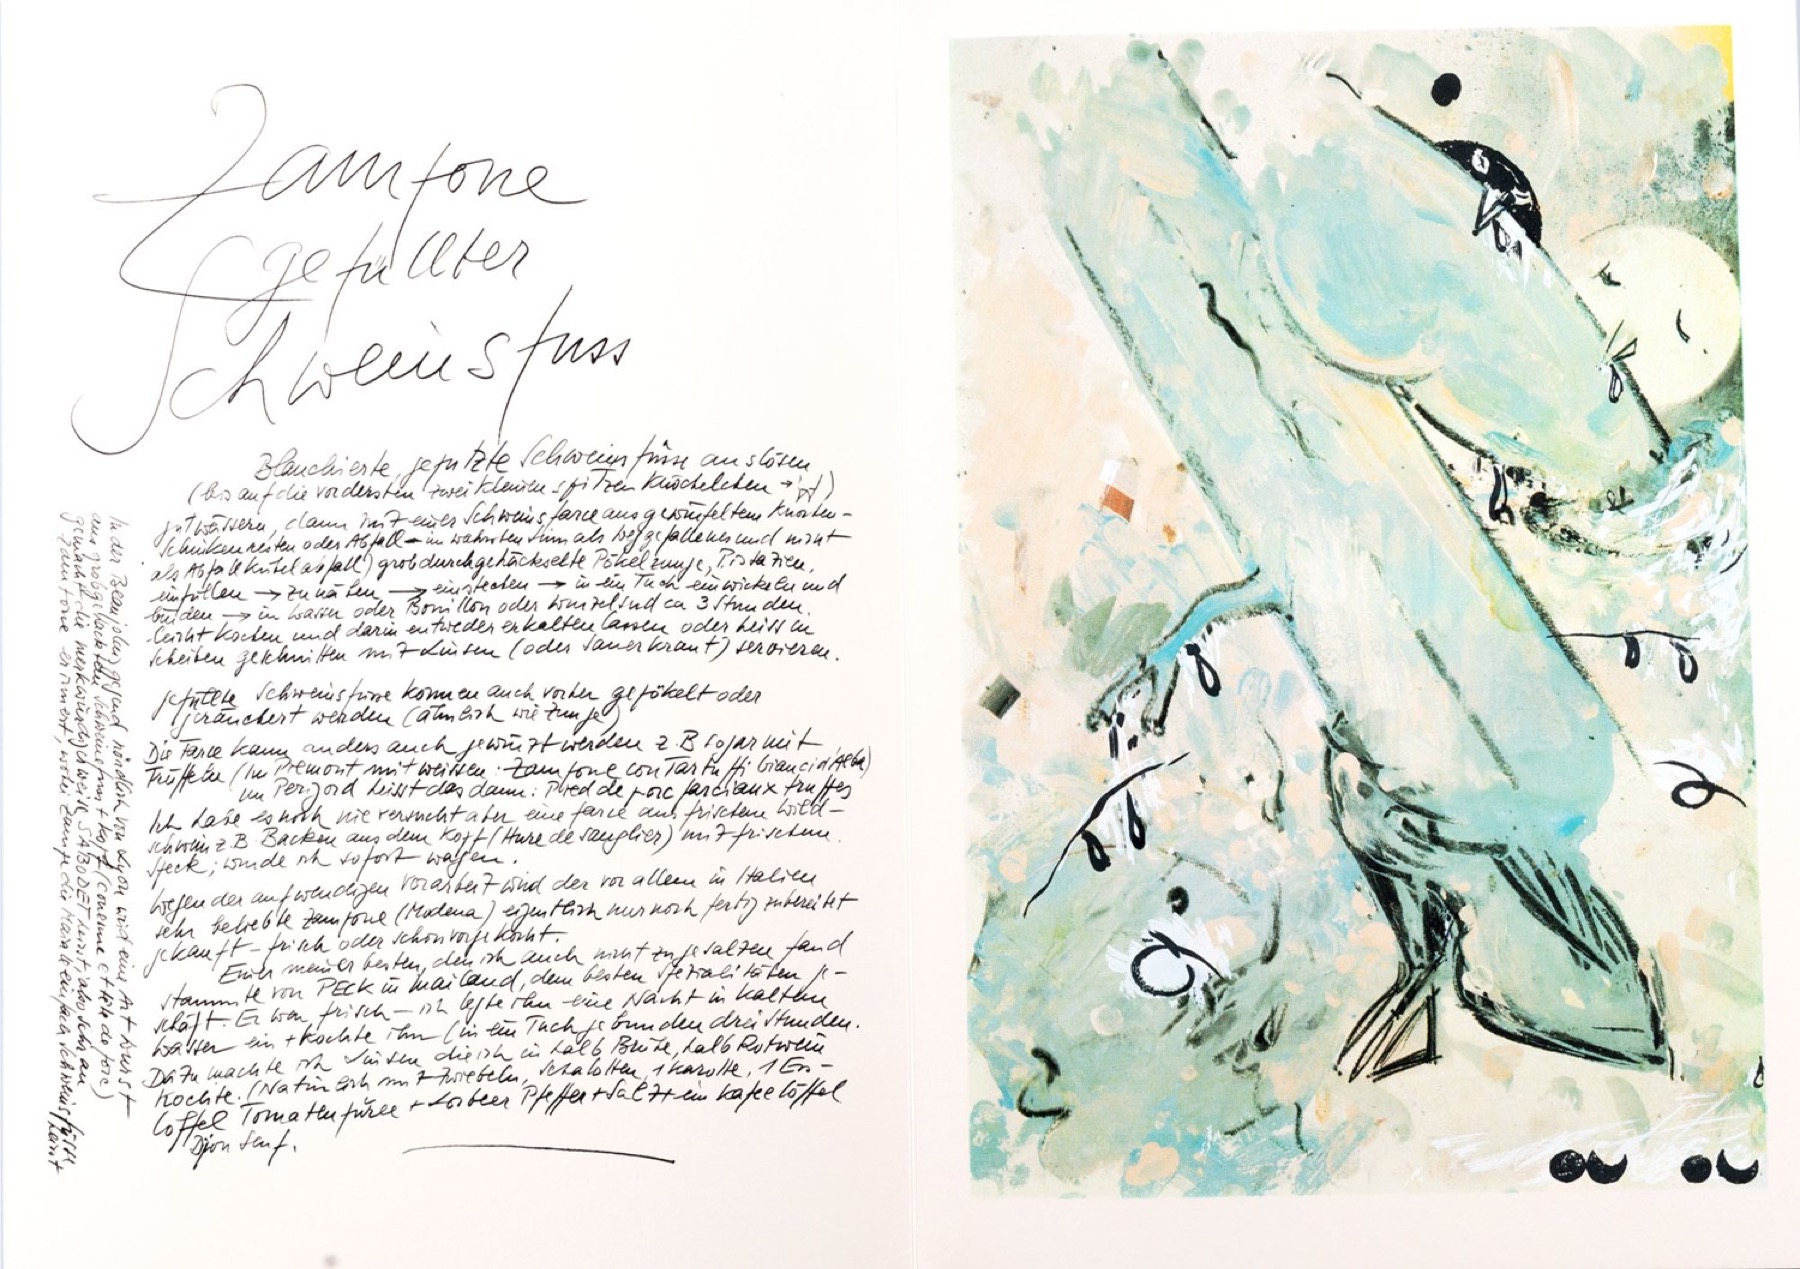 Zampone
gefüllter
Schweinsfuss
Blanchierte, geputzte Schweinsfüsse auslösen
(bis auf die vordersten zwei kleinen spitzen Knöchelchen →)
gut wässern, dann mit einer Schweinsfarce aus gewürfeltem Knochen-
schinkenresten oder Abfall – im wahrsten Sinn als weggefallenes und nicht
als Abfallkübelabfall) grob durchgehackte Pökelzunge, Pistazien,
einfüllen → zu nähen, → einstechen → in ein Tuch einwickeln und
binden → in Wasser oder Bouillon oder Wurzelsud ca 3 Stunden
leicht kochen und darin entweder erkalten lassen oder heiss in
Scheiben geschnitten mit Linsen (oder Sauerkraut) servieren.
gefüllte Schweinsfüsse können auch vorher gepökelt oder
geräuchert werden (ähnlich wie Zunge)
Die Farce kann anders auch gewürzt werden z.B sogar mit
Trüffeln (im Piemont mit weissen: Zampone con Tartuffi bianci d'Alba)
im Perigord heisst das dann: Pied de porc farci aux truffes
Ich habe es noch nie versucht aber eine farce aus frischem Wild-
schwein z.B. Backen aus dem Kopf (Hure de sanglier) mit frischem
Speck; würde ich sofort wagen.
Wegen der aufwendigen Vorarbeit wird der vor allem in Italien
sehr beliebte Zampone (Modena) eigentlich nur noch fertig zubereitet
gekauft – frisch oder schon vorgekocht.
Einer meiner besten, den ich auch nicht zu gesalzen fand
stammte von PECK in Mailand, dem besten Spezialitäten ge-
schäft. Er war frisch – ich legte ihn eine Nacht in kaltem
Wasser ein + kochte ihn (in ein Tuch gebunden drei Stunden.
Dazu machte ich Linsen die ich in halb Brühe, halb Rotwein
kochte. (Natürlich mit Zwiebeln, Schalotten, 1 Karotte, 1 Ess-
löffel Tomatenpüree + Lorbeer Pfeffer + Salz + ein Kafeelöffel
Dijon Senf.
In der Beaujolais gegend nördlich von Lyon wird eine Art Wurst
aus grobgehackten Schweinsfuss + Kopf (couenne et tête de porc)
gemacht die merkwürdigerweise SABODET heisst, also schon an
Zampone erinnert, wobei Zampe die Haxe einfach Schweinsfüsse
heisst